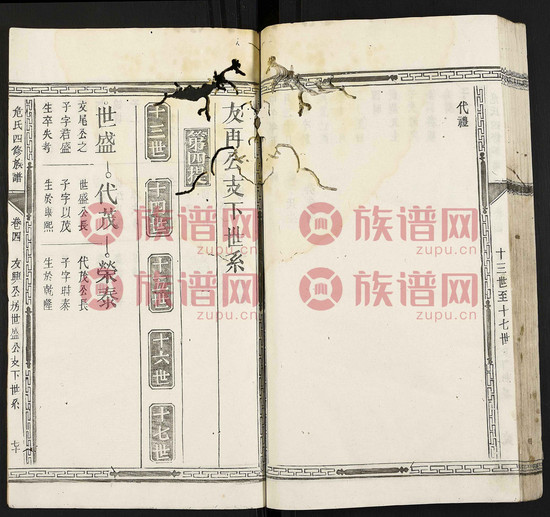 代禮
十三世至十七世
友再公支下世系
第四
十三世
十四世
十五世
十六世
十七世
世盛
文尾公之
子字君盛
生卒失考
代茂
世盛公長
子字以茂
生於雍熙
榮泰
代茂公長
子字時泰
生於乾隆
危氏四修族譜
卷四
友興公房世盛公支下世系
族谱网
zupu.cn
族谱网
zupu.cn
族谱网
zupu.cn
族谱网
zupu.cn
族谱网
zupu.cn
族谱网
zupu.cn